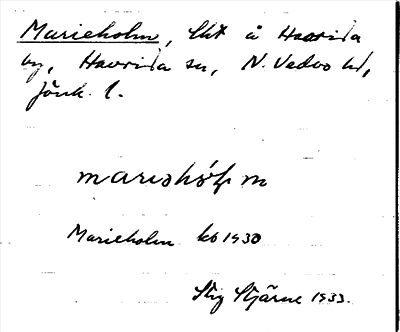 Marieholm, lht å Haurida
by, Haurida sn, N. Vedbo hd,
Jönk. l.
marıəhól̥m
Marieholm kb 1930
Stig Stjärne 1933.